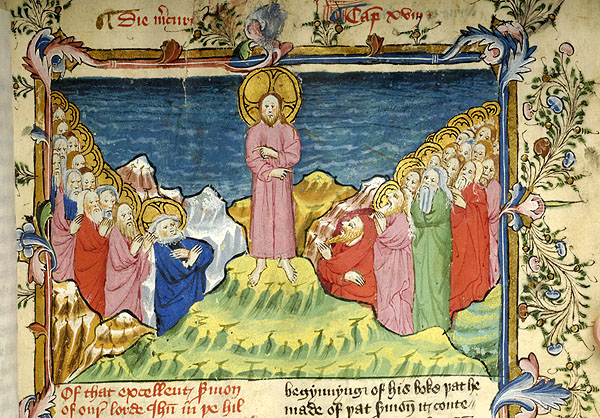 Die m̄curi
Cap̄ xviii
Of that excellent s̄mon
of our̄ lorde ih̄u in þe hil
begynnyng of his boke þat he
made of þat s̄mon it conte